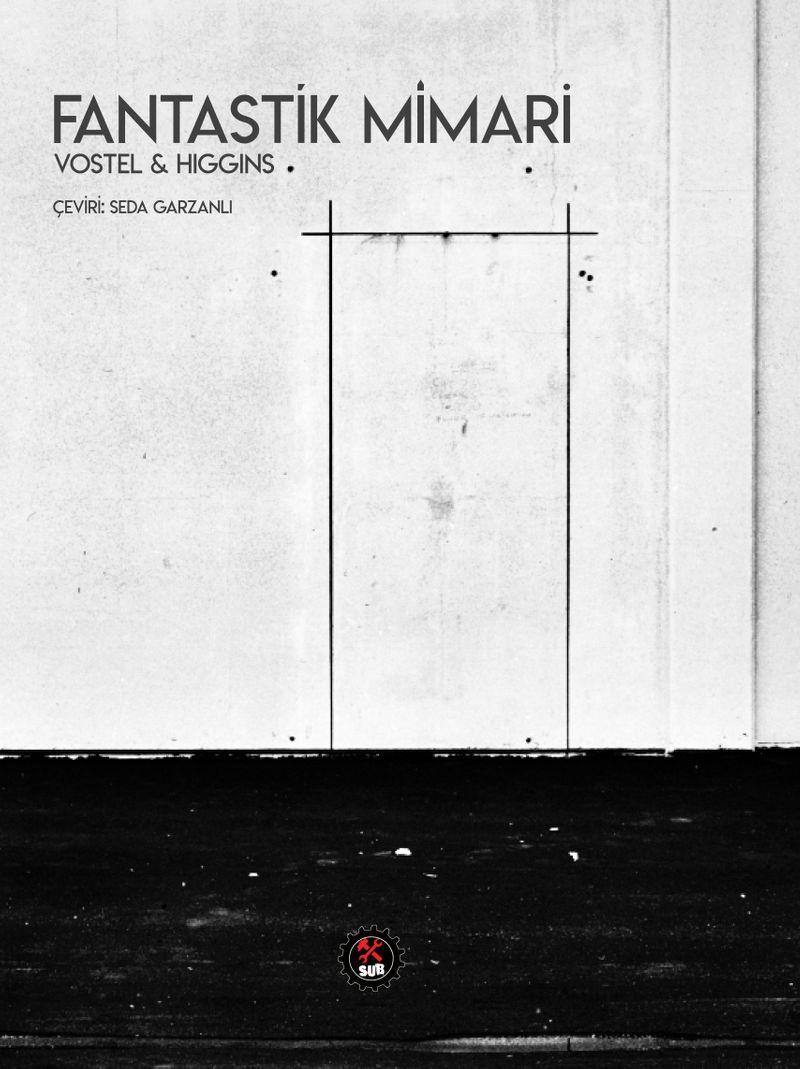 FANTASTİK MİMARİ
VOSTEL & HIGGINS
ÇEVİRİ: SEDA GARZANLI
SUB